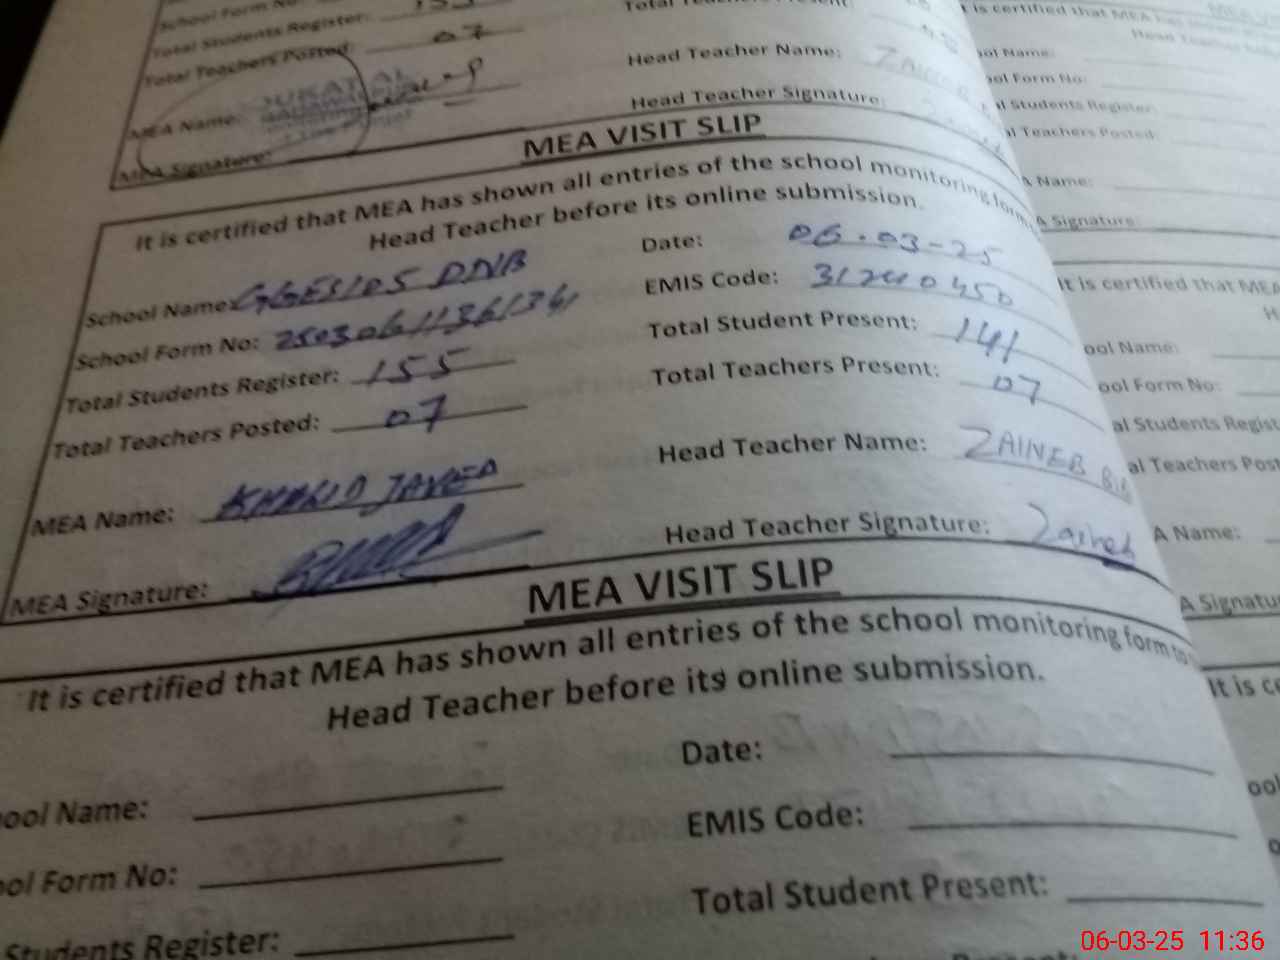 School Form No:
Total Students Register: 155
Total Teachers Posted: 07
MEA Name:
MEA Signature:
Head Teacher Name:
Head Teacher Signature:
MEA VISIT SLIP
It is certified that MEA has shown all entries of the school monitoring form
Head Teacher before its online submission.
Date: 06-03-25
School Name:
EMIS Code: 31240450
School Form No:
Total Student Present: 141
Total Students Register: 155
Total Teachers Present: 07
Total Teachers Posted: 07
Head Teacher Name: ZAINEB
MEA Name: KHALID JAVED
Head Teacher Signature: Zaineb
MEA Signature:
MEA VISIT SLIP
It is certified that MEA has shown all entries of the school monitoring form to
Head Teacher before its online submission.
Date:
ool Name:
EMIS Code:
ool Form No:
Total Student Present:
Students Register:
is certified that MEA has
ool Name:
ool Form No:
al Students Register:
al Teachers Posted:
A Name:
A Signature:
It is certified that MEA
ool Name:
ool Form No:
al Students Regist
al Teachers Post
A Name:
A Signatu
It is ce
ool
06-03-25 11:36